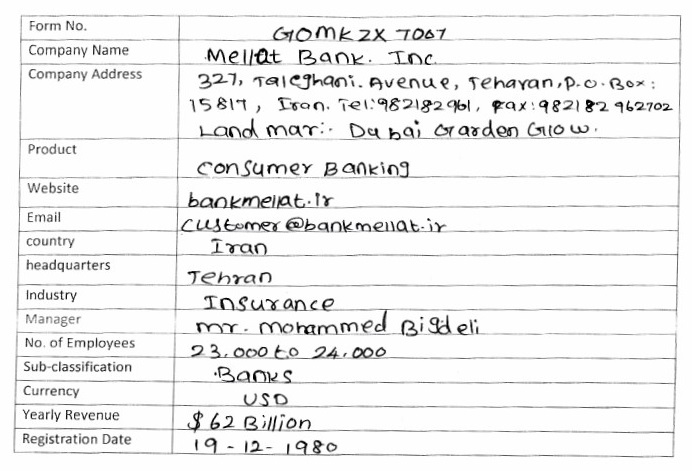 Form No. GOMKZX 7007
Company Name Mellat Bank. Inc
Company Address 327, Taleghani. Avenue, Teharan, P.O. Box:
15817, Iran. Tel:982182961, Fax:982182 962702
Land mar:- Dubai Garden Glow.
Product Consumer Banking
Website bankmellat.ir
Email customer@bankmellat.ir
country Iran
headquarters Tehran
Industry Insurance
Manager mr. mohammed Bigdeli
No. of Employees 23,000 to 24,000
Sub-classification Banks
Currency USD
Yearly Revenue $ 62 Billion
Registration Date 19-12-1980